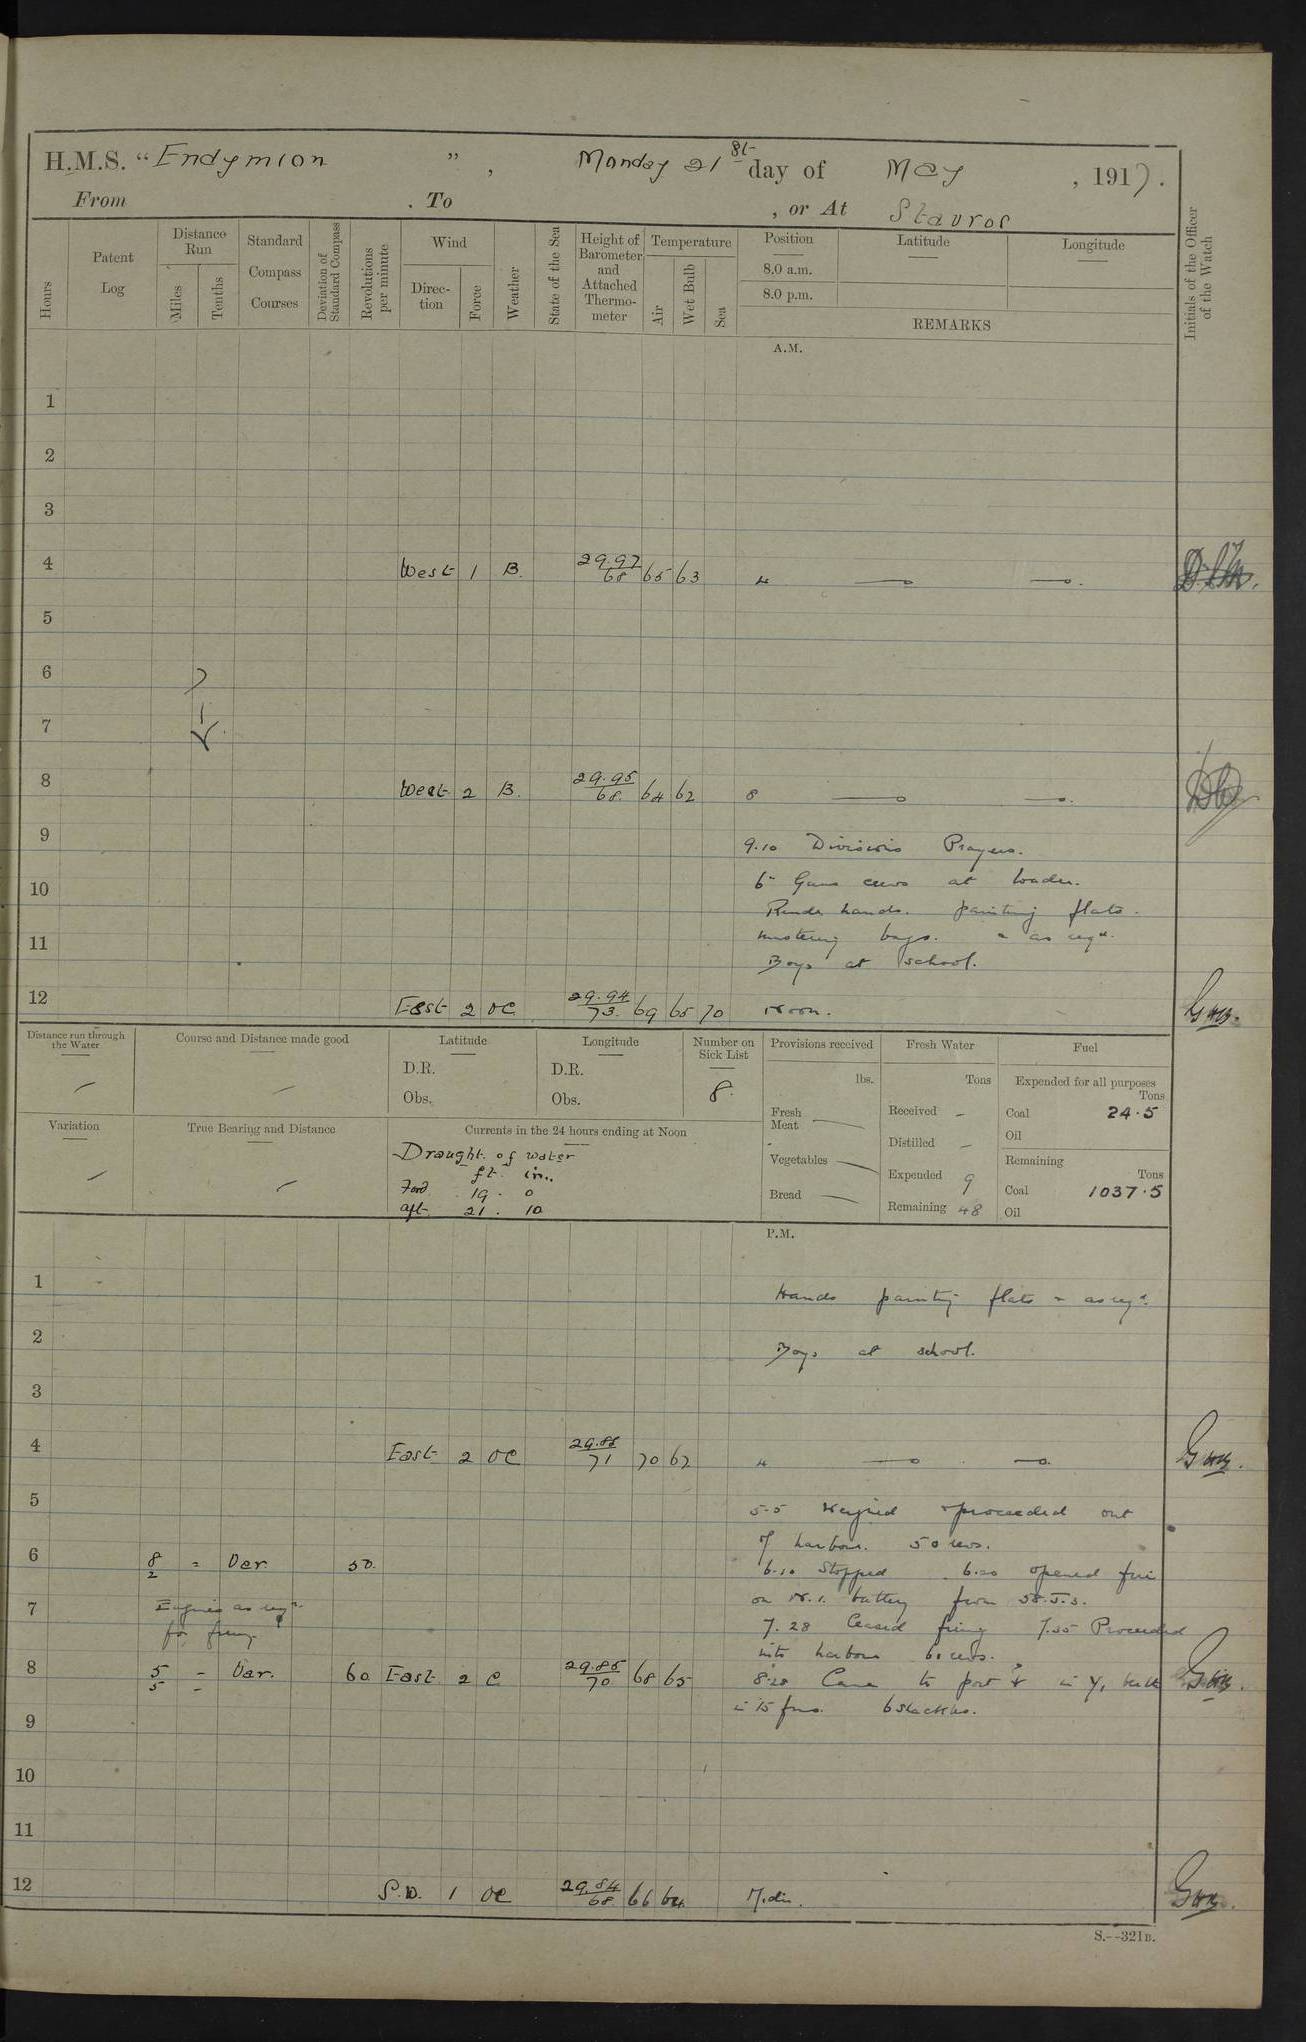 H.M.S. “Endymion ”, Monday 21st day of May, 1917.
From . To , or At Stavros
Hours
Patent Log
Distance Run
Miles
Tenths
Standard Compass Courses
Deviation of Standard Compass
Revolutions per minute
Wind
Direc-tion
Force
Weather
State of the Sea
Height of Barometer and Attached Thermo-meter
Temperature
Air
Wet Bulb
Sea
Position
8.0 a.m.
8.0 p.m.
Latitude
Longitude
REMARKS
Initials of the Officer of the Watch
A.M.
1
2
3
4 West 1 B. 29.97 68 65 63 4
5
6
7
8 West 2 B. 29.95 68 64 62 8
9 9.10 Divisions Prayers.
6" Guns crews at loader.
10
hands. painting flats.
11 mustering bags. as reqd.
Boys at school.
12 East 2 OC 29.94 73 69 65 70 Noon.
Distance run through the Water
Course and Distance made good
Latitude
D.R.
Obs.
Longitude
D.R.
Obs.
Number on Sick List
8.
Provisions received
lbs.
Fresh Meat
Vegetables
Bread
Fresh Water
Tons
Received -
Distilled -
Expended 9
Remaining 48
Fuel
Expended for all purposes
Tons
Coal 24.5
Oil
Remaining
Tons
Coal 1037.5
Oil
Variation
True Bearing and Distance
Currents in the 24 hours ending at Noon
Draught of water
ft. in.
Ford 19 . 0
Aft. 21 . 10
P.M.
1 Hands painting flats as reqd.
2 Boys at school.
3
4 East 2 OC 29.88 71 70 67 4
5 5.5 Weighed & proceeded out
of harbour. 50 revs.
6 8 2 - Var 50. 6.10 Stopped. 6.20 opened fire
7 Engines as reqd. on battery from
for firing. 7.28 Ceased firing 7.35 Proceeded
into harbour 60 revs.
8 5 5 - Var. 60 East 2 C 29.85 70 68 65 8.20 Came to port in
in 15 fms. 6 shackles.
9
10
11
12 S.W. 1 OC 29.84 68 66 64 Mid.
S.--321B.